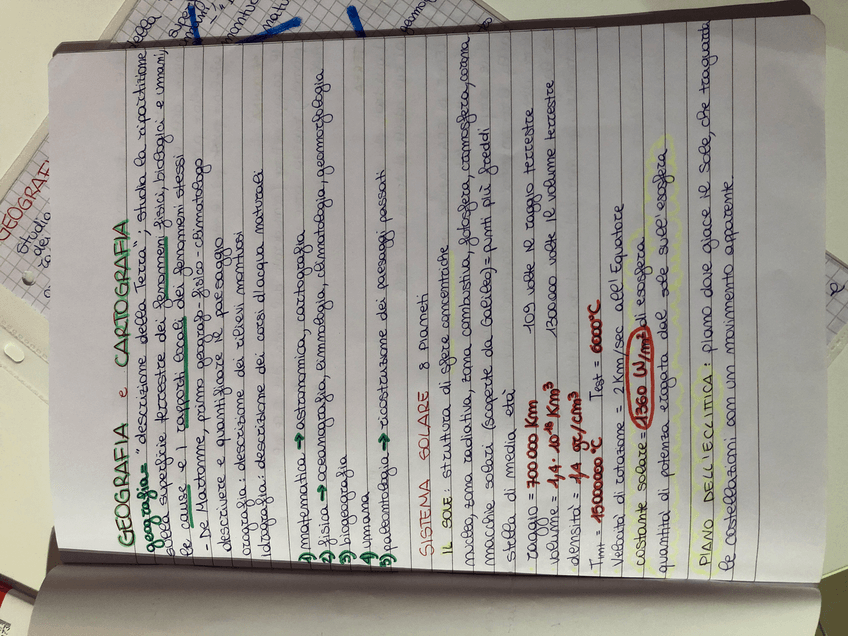 GEOGRAFIA e CARTOGRAFIA
geografia = "descrizione della Terra"; studia la ripartizione sulla superficie terrestre dei fenomeni fisici, biologici e umani,
le cause e i rapporti locali dei fenomeni stessi
- De Martonne, primo geografo-fisico-climatologo
descrivere e quantificare il paesaggio
orografia: descrizione dei rilievi montuosi
idrografia: descrizione dei corsi d'acqua naturali
1) matematica → astronomica, cartografia
2) fisica → oceanografia, limnologia, climatologia, geomorfologia
3) biogeografia
4) umana
5) paleontologia → ricostruzione dei paesaggi passati
SISTEMA SOLARE 8 pianeti
IL SOLE: struttura di sfere concentriche
nucleo, zona radiativa, zona combustiva, fotosfera, cromosfera, corona
macchie solari (scoperte da Galileo) = punti più freddi
stella di media età
raggio = 700 000 Km 109 volte il raggio terrestre
volume = 1,4 · 10¹⁸ Km³ 1 300 000 volte il volume terrestre
densità = 1,4 gr/cm³
Tint = 15 000 000 °C Test = 6000°C
Velocità di rotazione = 2 Km/sec all'Equatore
costante solare = 1360 W/m² di esosfera
quantità di potenza erogata dal sole sull'esosfera
PIANO DELL'ECLITTICA: piano dove giace il Sole, che traguarda
le costellazioni con un movimento apparente.
GEOGRAF
studio